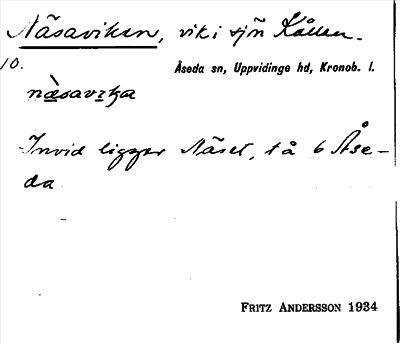 Näsaviken, vik i sjön Kållen.
10.
Åseda sn, Uppvidinge hd, Kronob. l.
næ̀savɪka
Invid ligger Näset, t å 6 Åse-
da
FRITZ ANDERSSON 1934